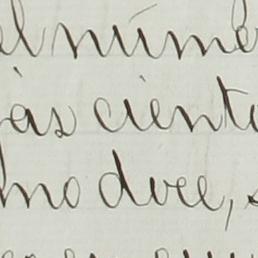 el núme
às ciento
no doce,